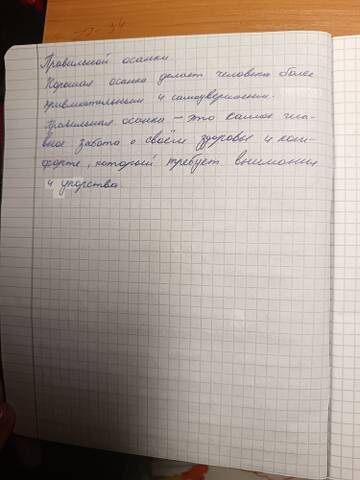 Правильной осанки
Хорошая осанка делает человека более
привлекательным и самоуверенным.
Правильная осанка – это самое гла-
вное забота о своём здоровье и ком-
форте, который требует внимания
и упорства.